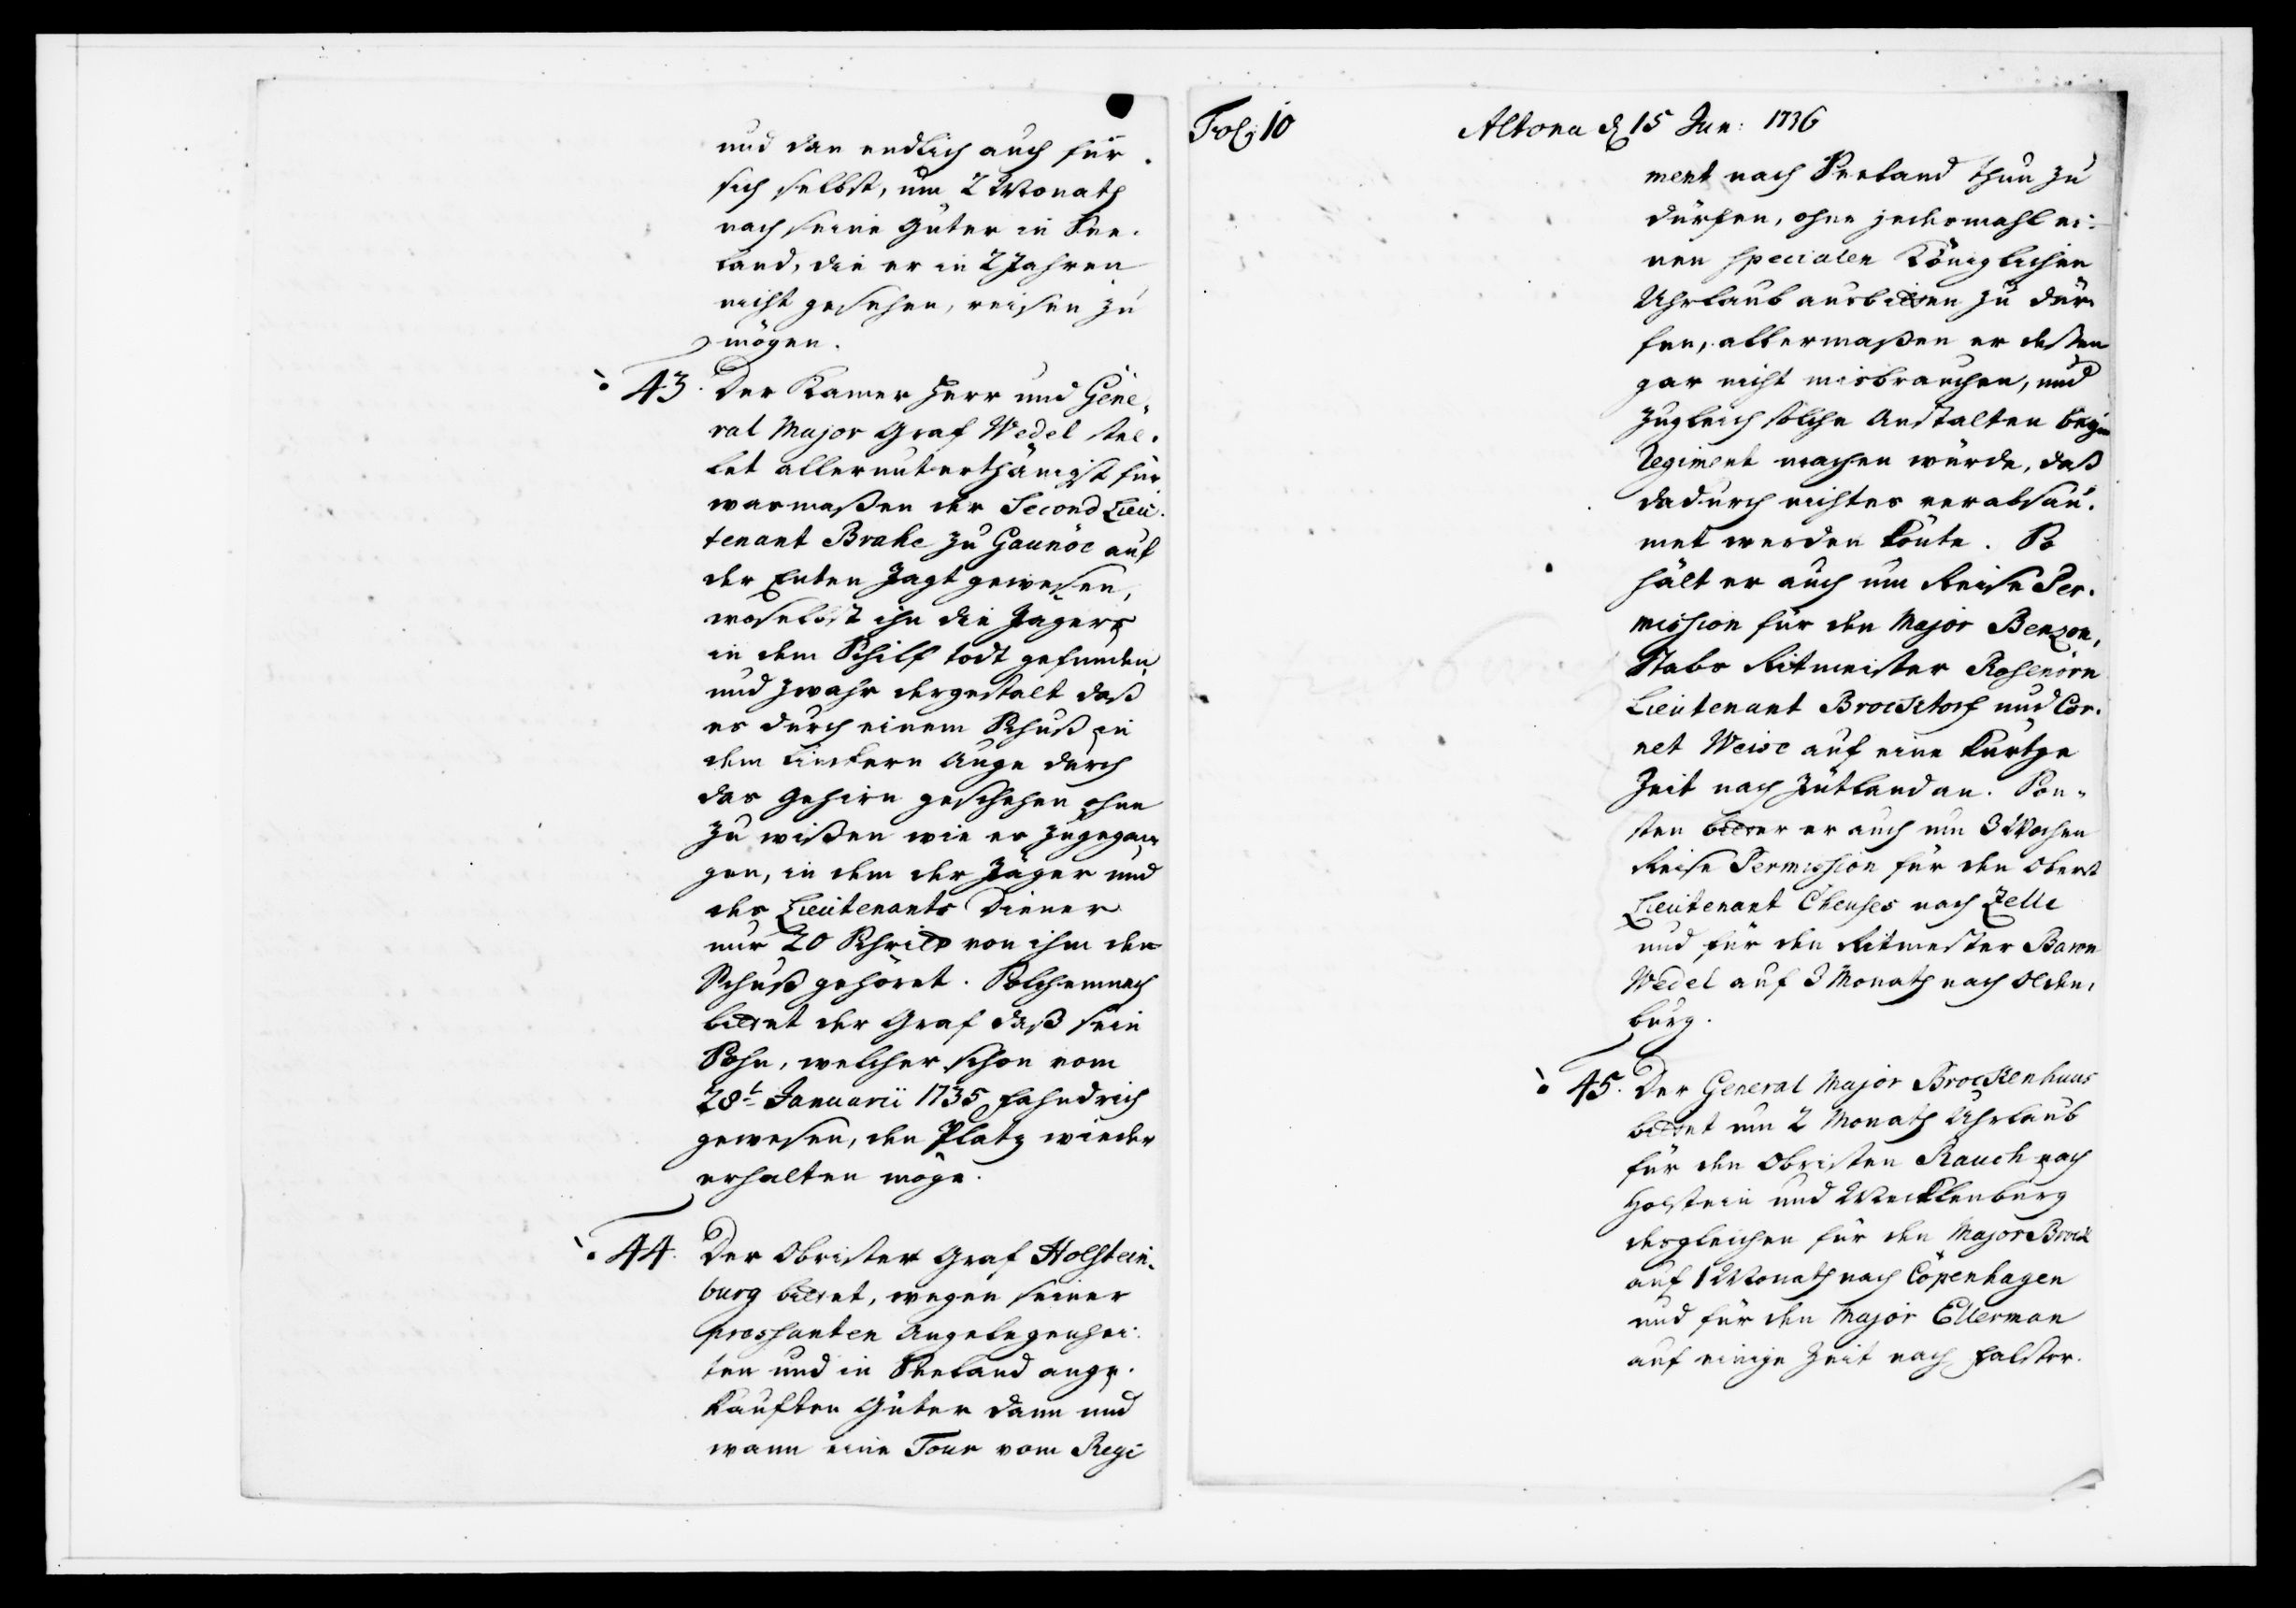 und dan endlich auch für
sich selbst, um 2 Monath
nach seine Güter in See-
land, die er in 2 Jahren
nicht gesehen, reisen zu
mögen.
43. Der Kamer Herr und Gene-
ral Major Graf Wedel stel-
let allerunterthänigst für
wasmaßen der Second Lieu-
tenant Brahe zu Gaunöe auf
der Enten Jagt gewesen,
woselbst ihn die Jägers
in dem Schilf todt gefunden
und zwahr dergestalt daß
es durch einem Schuß in
dem linckern Auge durch
das Gehirn geschehen ohne
zu wißen wie es zugegan-
gen, in dem der Jäger und
des Lieutenants Diener
nur 20 Schritt von ihm den
Schuß gehöret. Solchemnach
bittet der Graf daß sein
Sohn, welcher schon vom
28t Januarii 1735 Fahndrich
gewesen, den Platz wieder
erhalten möge.
44. Der Obrister Graf Holstein-
burg bittet, wegen seiner
pressanten Angelegenhei-
ten und in Seeland ange-
kauften Güter dann und
wann eine Tour vom Regi
Fol: 10
Altona d 15 Jun: 1736
ment nach Seeland thun zu
dürfen, ohne jedesmahl ei-
nen specialen Königlichen
Uhrlaub ausbitten zu dür-
fen, allermaßen er deßen
gar nicht misbrauchen, und
zugleich solche Anstalten beym
Regiment machen würde, daß
dadurch nichtes verabsäu-
met werden könte. So
hält er auch um Reise Per-
mission für den Major Benzon,
Stabs Ritmeister Rosenörn
Lieutenant Brockdorf und Cor-
net Weise auf eine kurtze
Zeit nach Jütland an. Son-
sten bittet er auch um 3 Wochen
Reise Permission für den Oberst
Lieutenant Cheuses nach Zelle
und für den Ritmeister Baron
Wedel auf 3 Monath nach Olden-
burg.
45. Der General Major Brockenhuus
bittet um 2 Monath Uhrlaub
für den Obristen Rauch nach
Holstein und Mecklenburg
desgleichen für den Major Brock
auf 1 Monath nach Copenhagen
und für den Major Ellerman
auf einige Zeit nach Falster.